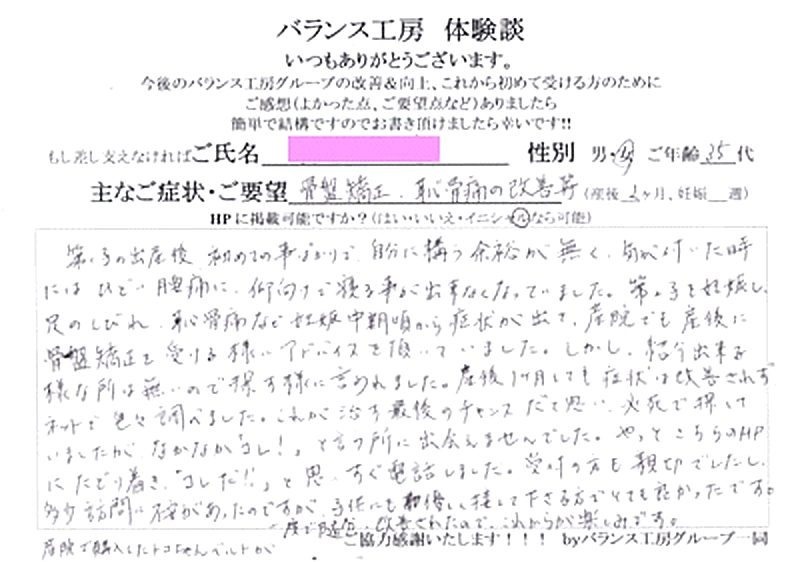 バランス工房 体験談
いつもありがとうございます。
今後のバランス工房グループの改善&向上、これから初めて受ける方のために
ご感想(よかった点、ご要望点など)ありましたら
簡単で結構ですのでお書き頂けましたら幸いです!!
もし差し支えなければご氏名 性別 男・女 ご年齢35代
主なご症状・ご要望 骨盤矯正、恥骨痛の改善等 (産後 ヶ月、妊娠 週)
HPに掲載可能ですか?(はい・いいえ・イニシャルなら可能)
第1子の出産後 初めての事ばかりで、自分に構う余裕が無く、気が付いた時
にはひどい腰痛に、仰向けで寝る事が出来なくなっていました。第2子を妊娠し、
足のしびれ、恥骨痛など妊娠中期頃から症状が出て、産院でも産後に
骨盤矯正を受ける様にアドバイスを頂いていました。しかし、紹介出来る
様な所は無いので探す様に言われました。産後1ヶ月しても症状は改善されず
ネットで色々調べました。これが治す最後のチャンスだと思い、必死で探して
いましたが なかなか「コレ!」と言う所に出会えませんでした。やっとこちらのHP
にたどり着き、「コレだ!!」と思い、すぐ電話しました。受付の方も親切でしたし、
多少訪問に不安があったのですが、子供にも優しく接して下さる方でとても良かったです。
産院で購入したトコちゃんベルトが
一度で 改善されたので、これからが楽しみです。
ご協力感謝いたします!!! byバランス工房グループ一同